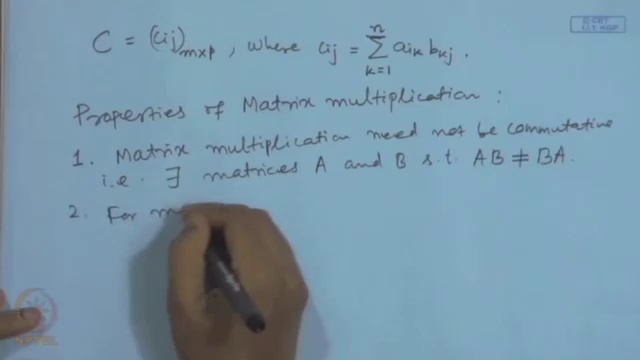 © CET
I.I.T. KGP
C = (cij)m×p , where cij = n∑k=1 aik bkj .
Properties of Matrix multiplication :
1. Matrix multiplication need not be commutative
i.e. ∃ matrices A and B s.t. AB ≠ BA.
2. For m
NPTEL